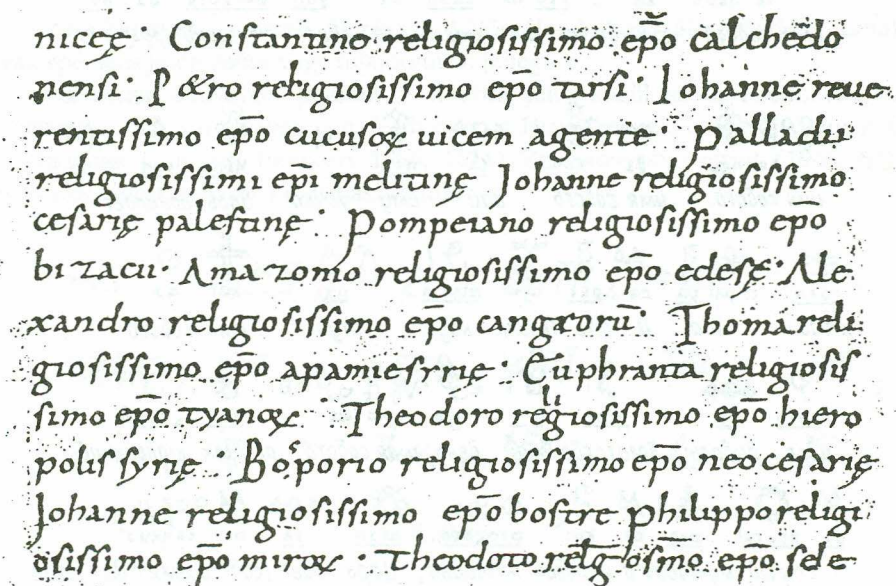 niceę· Constantino religiosissimo ep̄o calchedo
nensi· P&ro religiosissimo ep̄o tarsi· Iohanne reue
rentissimo ep̄o cucusoꝝ uicem agente· Palladii
religiosissimi ep̄i melitinę Iohanne religiosissimo
cesarię palestinę· Pompeiano religiosissimo ep̄o
bizacii· Amazonio religiosissimo ep̄o edesę· Ale
xandro religiosissimo ep̄o cangrorū· Thoma reli
giosissimo ep̄o apamiesyrię· Euphranta religiosis
simo ep̄o tyanoꝝ Theodoro religiosissimo ep̄o hiero
polis syrię· Bosporio religiosissimo ep̄o neocesarię
Iohanne religiosissimo ep̄o bostre Philippo religi
osissimo ep̄o miroꝝ· Theodoto relg̅iosm̅o ep̄o sele